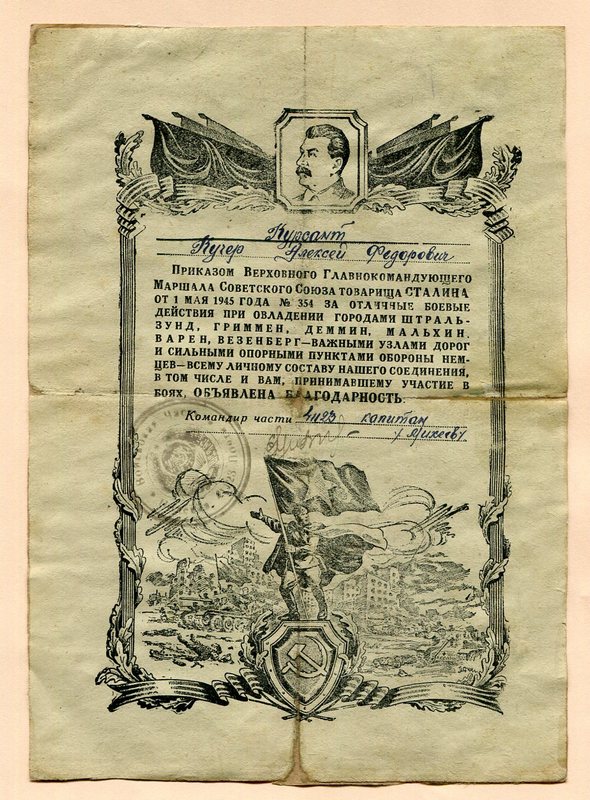 Курсант
Кучер Алексей Федорович
Приказом Верховного Главнокомандующего
Маршала Советского Союза товарища СТАЛИНА
от 1 мая 1945 года № 354 за отличные боевые
действия при овладении городами ШТРАЛЬ-
ЗУНД, ГРИММЕН, ДЕММИН, МАЛЬХИН,
ВАРЕН, ВЕЗЕНБЕРГ—важными узлами дорог
и сильными опорными пунктами обороны нем-
цев—всему личному составу нашего соединения,
в том числе и Вам, принимавшему участие в
боях, ОБЪЯВЛЕНА БЛАГОДАРНОСТЬ.
Командир части капитан
/ Михеев /